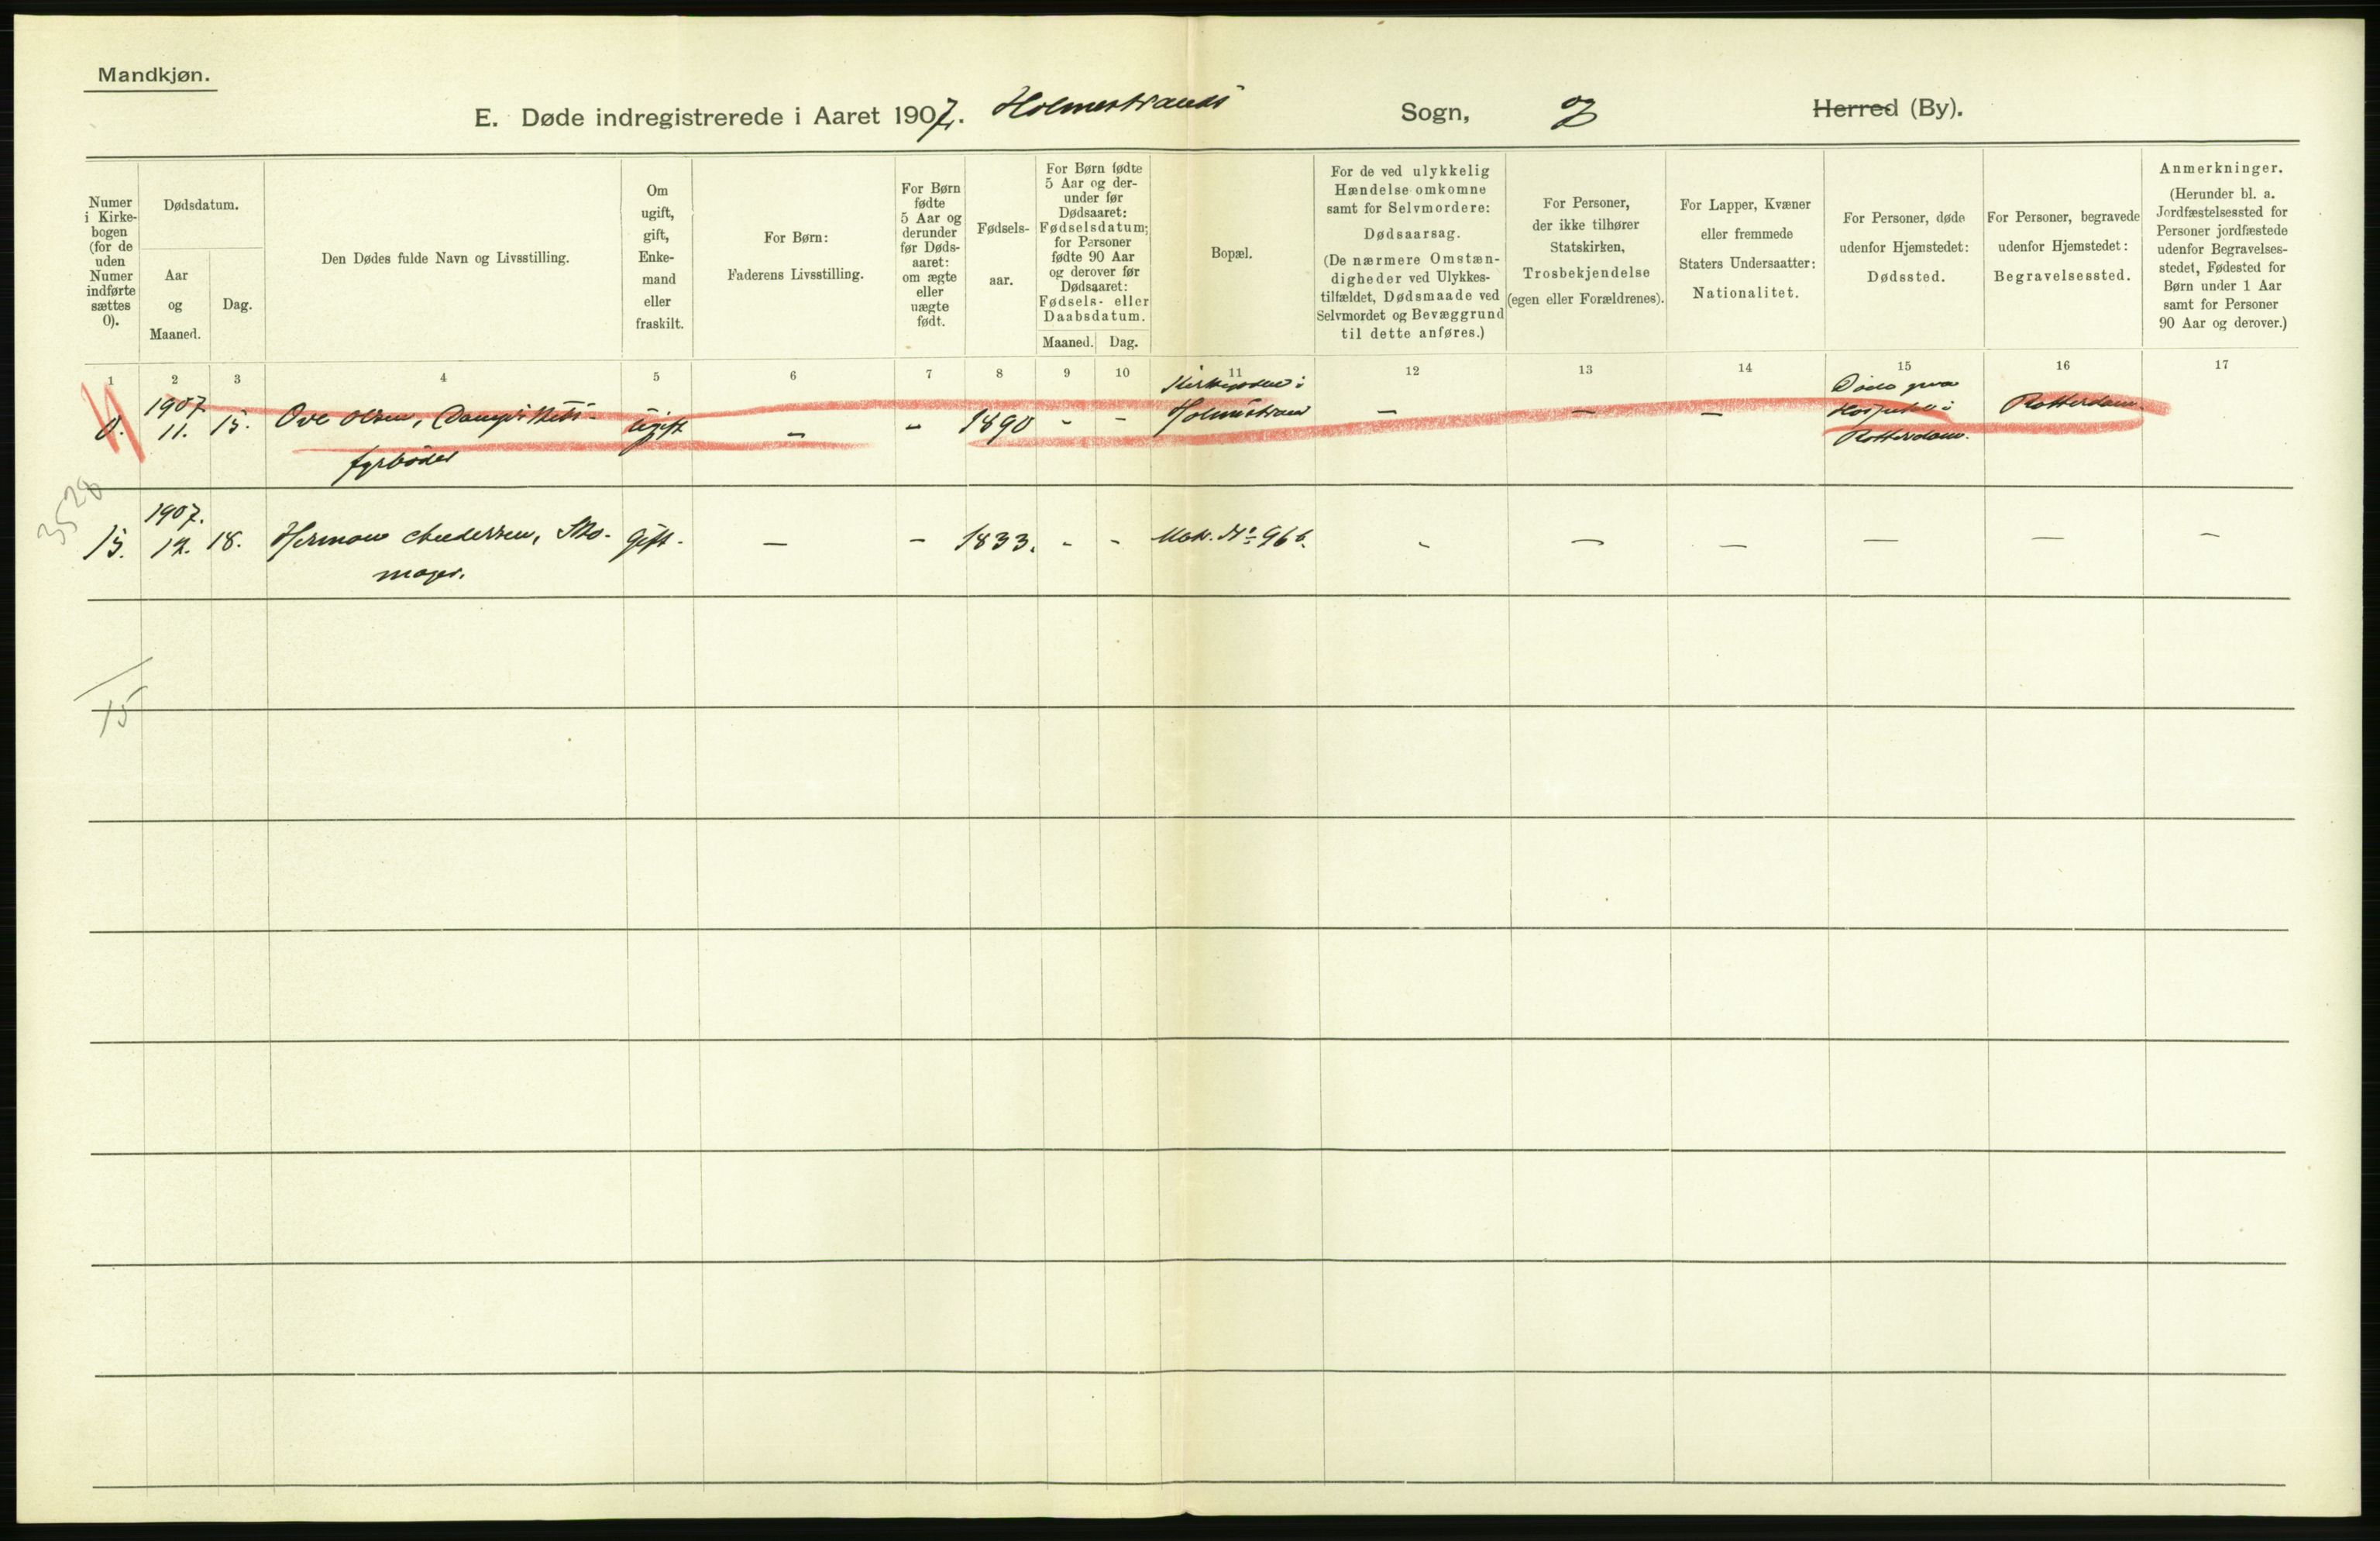 Mandkjøn.
E. Døde indregistrerede i Aaret 1907. Holmestrands Sogn, og Herred (By).
Numer
i Kirke-
bogen
(for de
uden
Numer
indførte
sættes
0).
Dødsdatum.
Aar
og
Maaned.
Dag.
Den Dødes fulde Navn og Livsstilling.
Om
ugift,
gift,
Enke-
mand
eller
fraskilt.
For Børn:
Faderens Livsstilling.
For Børn
fødte
5 Aar og
derunder
før Døds-
aaret:
om ægte
eller
uægte
født.
Fødsels-
aar.
For Børn fødte
5 Aar og der-
under før
Dødsaaret:
Fødselsdatum;
for Personer
fødte 90 Aar
og derover før
Dødsaaret:
Fødsels- eller
Daabsdatum.
Maaned.
Dag.
Bopæl.
For de ved ulykkelig
Hændelse omkomne
samt for Selvmordere:
Dødsaarsag.
(De nærmere Omstæn-
digheder ved Ulykkes-
tilfældet, Dødsmaade ved
Selvmordet og Bevæggrund
til dette anføres.)
For Personer,
der ikke tilhører
Statskirken,
Trosbekjendelse
(egen eller Forældrenes).
For Lapper, Kvæner
eller fremmede
Staters Undersaatter:
Nationalitet.
For Personer, døde
udenfor Hjemstedet:
Dødssted.
For Personer, begravede
udenfor Hjemstedet:
Begravelsessted.
Anmerkninger.
(Herunder bl. a.
Jordfæstelsessted for
Personer jordfæstede
udenfor Begravelses-
stedet, Fødested for
Børn under 1 Aar
samt for Personer
90 Aar og derover.)
1 2 3 4 5 6 7 8 9 10 11 12 13 14 15 16 17
0. 1907. 11. 15. Ove Olsen, Dampskibs-
fyrbøder
Ugift - - 1890 - -
Holmestrand
- - -
Døde paa
Hospital i
Rotterdam.
Rotterdam.
3528
15. 1907. 12. 18. Herman Andersen, Sko-
mager.
Gift. - - 1833. - - Mat. No 966. - - - - - -
15